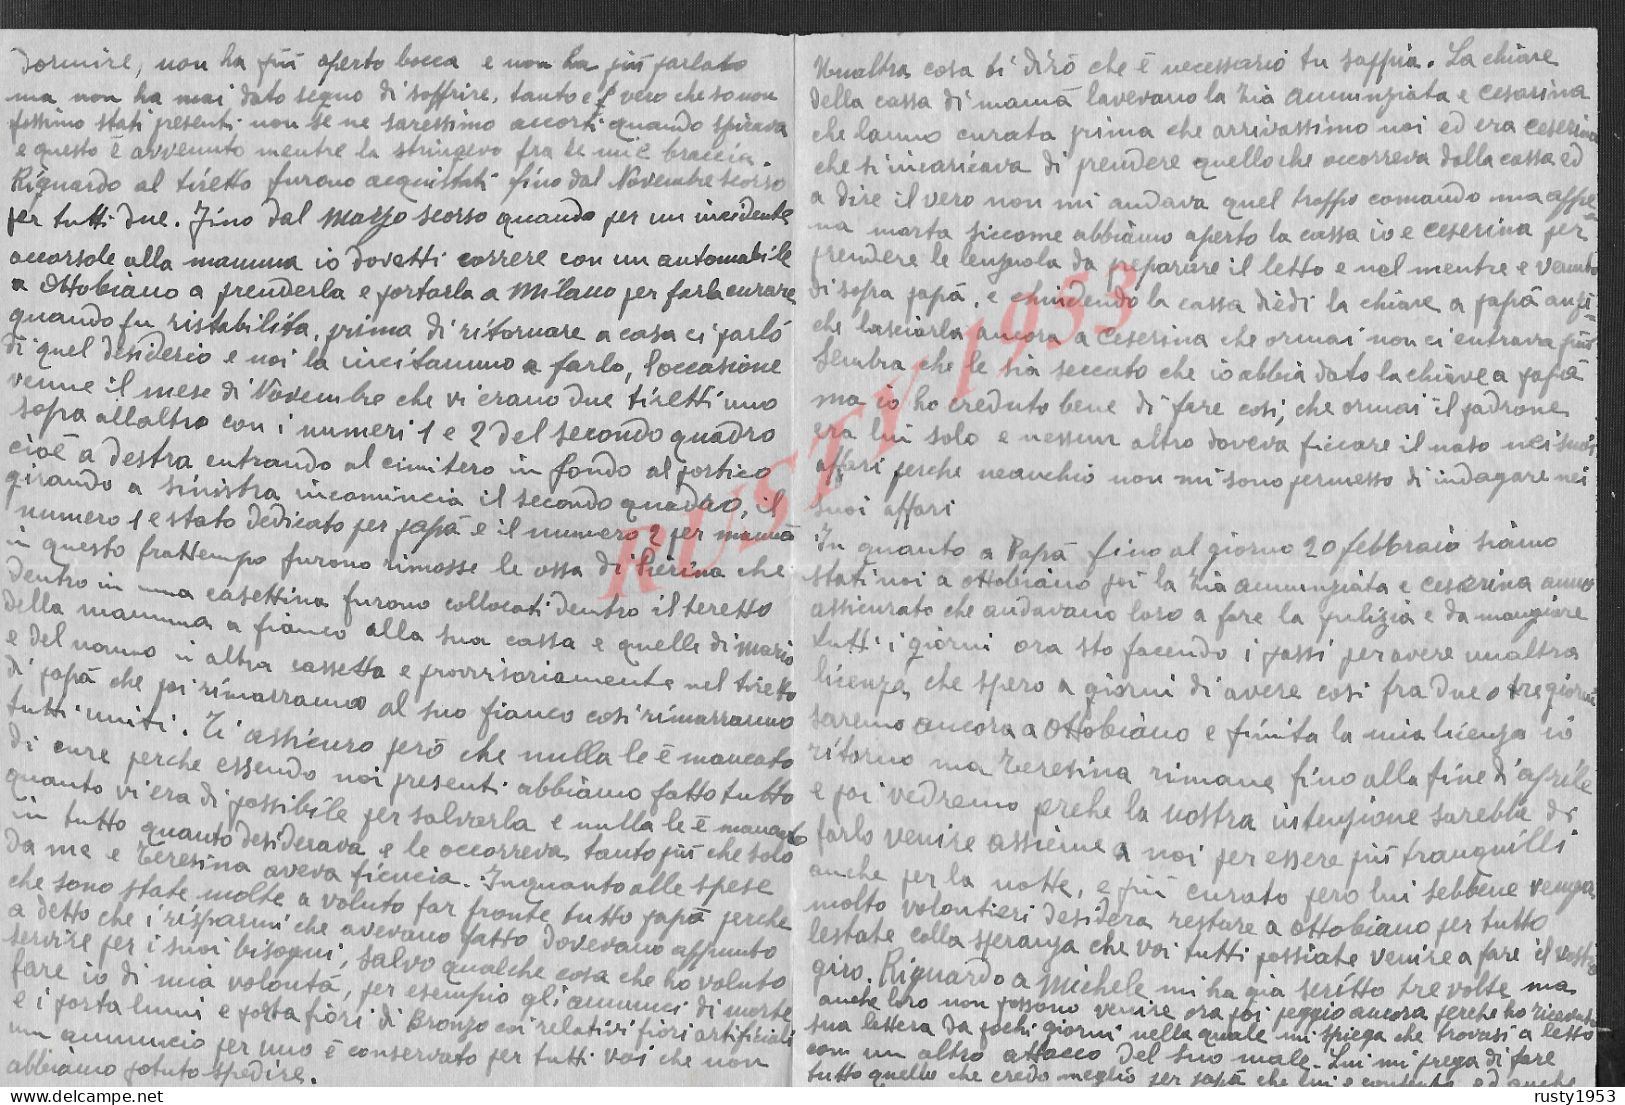 dormire, non ha più aperto bocca e non ha più parlato
ma non ha mai dato segno di soffrire, tanto e vero che se non
fossimo stati presenti non se ne saressimo accorti quando spirava
e questo è avvenuto mentre la stringevo fra le mie braccia.
Riguardo al tiretto furono acquistati fino dal Novembre scorso
per tutti due. Fino dal Marzo scorso quando per un incidente
accorsole alla mamma io dovetti correre con un automabile
a Ottobiano a prenderla e portarla a Milano per farla curare
quando fu ristabilita, prima di ritornare a casa ci parlò
di quel desiderio e noi la incitammo a farlo, l'occasione
venne il mese di Novembre che vi erano due tiretti uno
sopra all'altro con i numeri 1 e 2 del secondo quadro
cioè a destra entrando al cimitero in fondo al portico
girando a sinistra incomincia il secondo quadro, il
numero 1 e stato dedicato per papà e il numero 2 per mamma
in questo frattempo furono rimosse le ossa di Pierina che
dentro in una casettina furono collocati dentro il teretto
della mamma a fianco alla sua cassa e quelle di Mario
e del nonno in altra cassetta e provvisoriamente nel tiretto
di papà che poi rimarranno al suo fianco così rimarranno
tutti uniti. Ti assicuro però che nulla le è mancato
di cure perche essendo noi presenti abbiamo fatto tutto
quanto vi era di possibile per salvarla e nulla le è mancato
in tutto quanto desiderava e le occorreva tanto più che solo
da me e Teresina aveva ficucia. Inquanto alle spese
che sono state molte a voluto far fronte tutto papà perche
a detto che i risparmi che avevano fatto dovevano appunto
servire per i suoi bisogni, salvo qualche cosa che ho voluto
fare io di mia volontà, per esempio gli annunci di morte
e i porta lumi e porta fiori di Bronzo coi relativi fiori artificiali
un annuncio per uno è conservato per tutti voi che non
abbiamo potuto spedire.
Unaltra cosa ti dirò che è necessario tu sappia. La chiave
della cassa di mamà lavevano la zia Annunziata e Ceserina
che lanno curata prima che arrivassimo noi ed era Ceserina
che si incaricava di prendere quello che occorreva dalla cassa ed
a dire il vero non mi andava quel troppo comando ma appe=
na morta siccome abbiamo aperto la cassa io e Ceserina per
prendere le lenzuola da preparare il letto e nel mentre e venuto
di sopra papà, e chiudendo la cassa diedi la chiave a papà anzi=
che lasciarla ancora a Ceserina che ormai non ci entrava più
Sembra che le sia seccato che io abbia dato la chiave a papà
ma io ho creduto bene di fare così, che ormai il padrone
era lui solo e nessun altro doveva ficcare il naso nei suoi
affari perche neanchio non mi sono permesso di indagare nei
suoi affari
In quanto a Papà fino al giorno 20 febbraio siamo
stati noi a Ottobiano poi la zia Annunziata e Ceserina anno
assicurato che andavano loro a fare la pulizia e da mangiare
tutti i giorni ora sto facendo i passi per avere unaltra
licenza, che spero a giorni di avere così fra due o tre giorni
saremo ancora a Ottobiano e finita la mia licenza io
ritorno ma Teresina rimane fino alla fine d'aprile
e poi vedremo perche la nostra intenzione sarebbe di
farlo venire assieme a noi per essere più tranquilli
anche per la notte, e più curato pero lui sebbene venga
molto volontieri desidera restare a Ottobiano per tutto
lestate colla speranza che voi tutti possiate venire a fare il vostro
giro. Riguardo a Michele mi ha già scritto tre volte ma
anche loro non possono venire ora poi peggio ancora perche ho ricevuto
sua lettera da pochi giorni nella quale mi spiega che trovasi a letto
com un altro attacco del suo male. Lui mi prega di fare
tutto quello che credo meglio per papà che lui e contento ed anche
RUSTY 1953
rusty1953